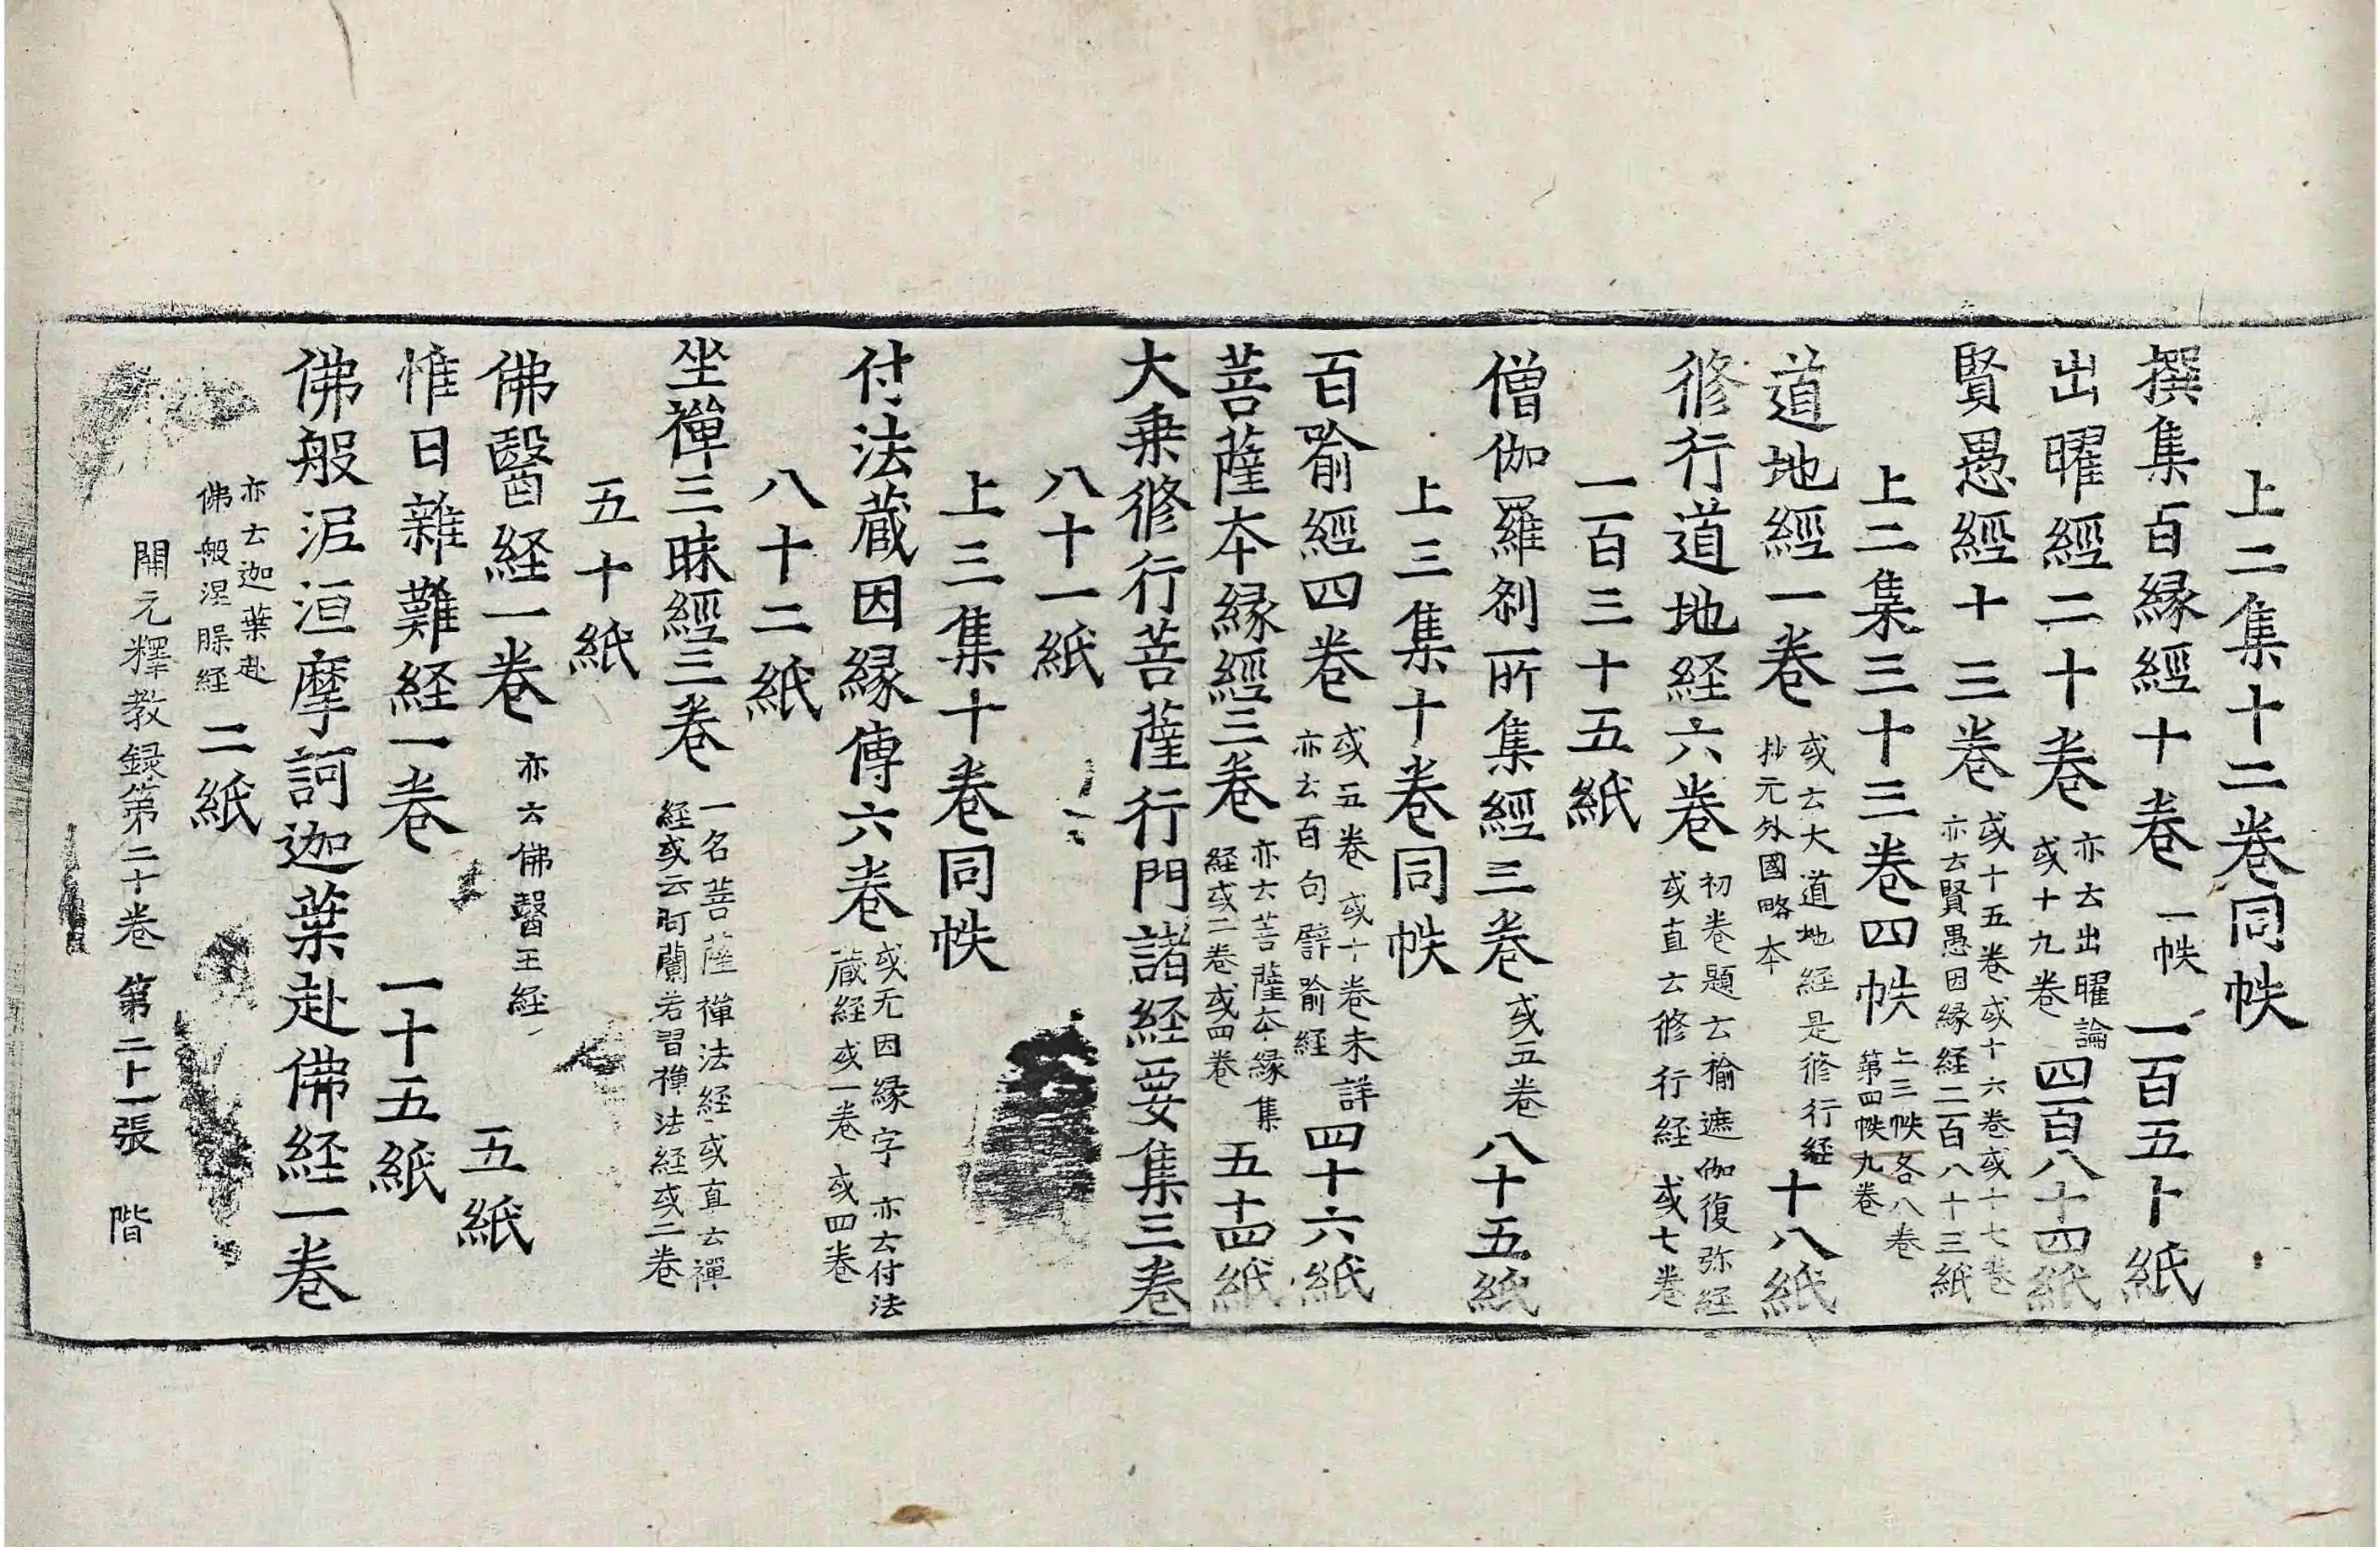 上二集十二卷同帙
撰集百緣經十卷 一帙 一百五十紙
出曜經二十卷 亦云出曜論或十九卷 四百八十四紙
賢愚經十三卷 或十五卷或十六卷或十七卷亦云賢愚因緣経二百八十三紙
上二集三十三卷四帙 上三帙各八卷第四帙九卷
道地經一卷 或云大道地経是修行経抄元外國略本 十八紙
修行道地経六卷 初卷題云揄遮伽復弥経或直云修行経或七卷
一百三十五紙
僧伽羅刹所集經三卷 或五卷 八十五紙
上三集十卷同帙
百喻經四卷 或五卷或十卷未詳亦云百句譬喻経 四十六紙
菩薩本緣經三卷 亦云菩薩本緣集経或二卷或四卷 五十四紙
大乗修行菩薩行門諸経要集三卷
八十一紙
上三集十卷同帙
付法蔵因緣傳六卷 或无因緣字亦云付法蔵経或一卷或四卷
八十二紙
坐禪三昧經三卷 一名菩薩禪法経或直云禪経或云阿蘭若習禪法経或二卷
五十紙
佛醫経一卷 亦云佛醫王経 五紙
惟日雜難経一卷 一十五紙
佛般泥洹摩訶迦葉赴佛経一卷
亦云迦葉赴佛般涅槃経 二紙
開元釋教録第二十卷 第二十一張 階